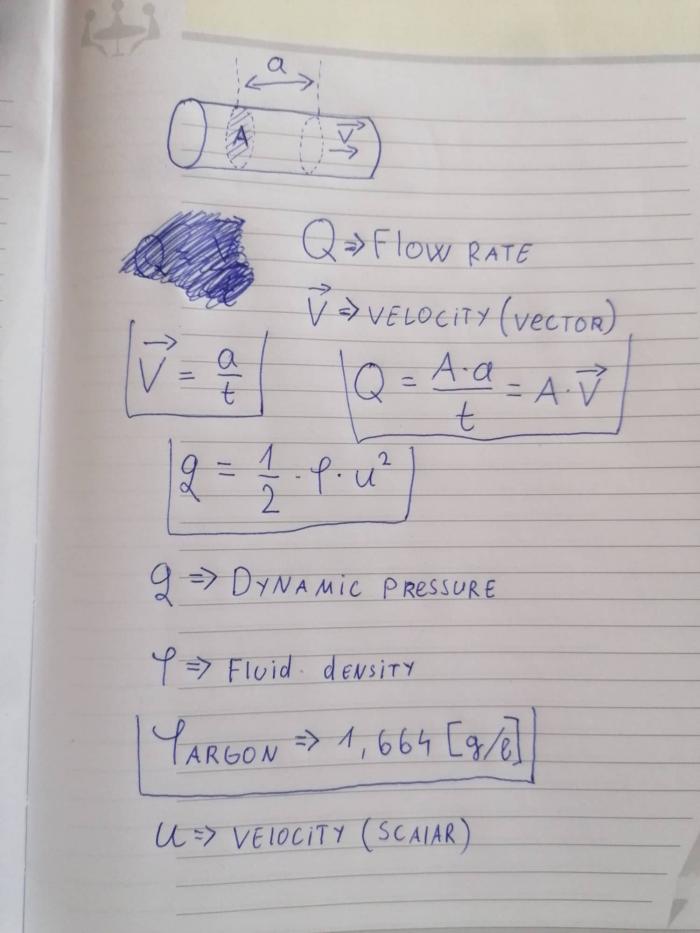 a
A V⃗
Q ⇒ FLOW RATE
V⃗ ⇒ VELOCITY (VECTOR)
V⃗ = a/t
Q = A·a/t = A·V⃗
q = 1/2 · ρ · u²
q ⇒ DYNAMIC PRESSURE
ρ ⇒ Fluid dENSITY
ρARGON ⇒ 1,664 [g/l]
u ⇒ VELOCITY (SCALAR)